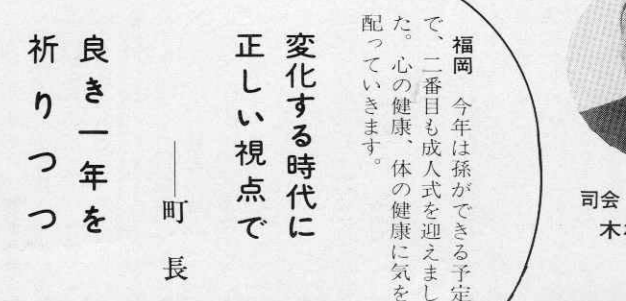 司会
木
福岡　今年は孫ができる予定
で、二番目も成人式を迎えまし
た。心の健康、体の健康に気を
配っていきます。
変化する時代に
正しい視点で
――町長
良き一年を
祈りつつ